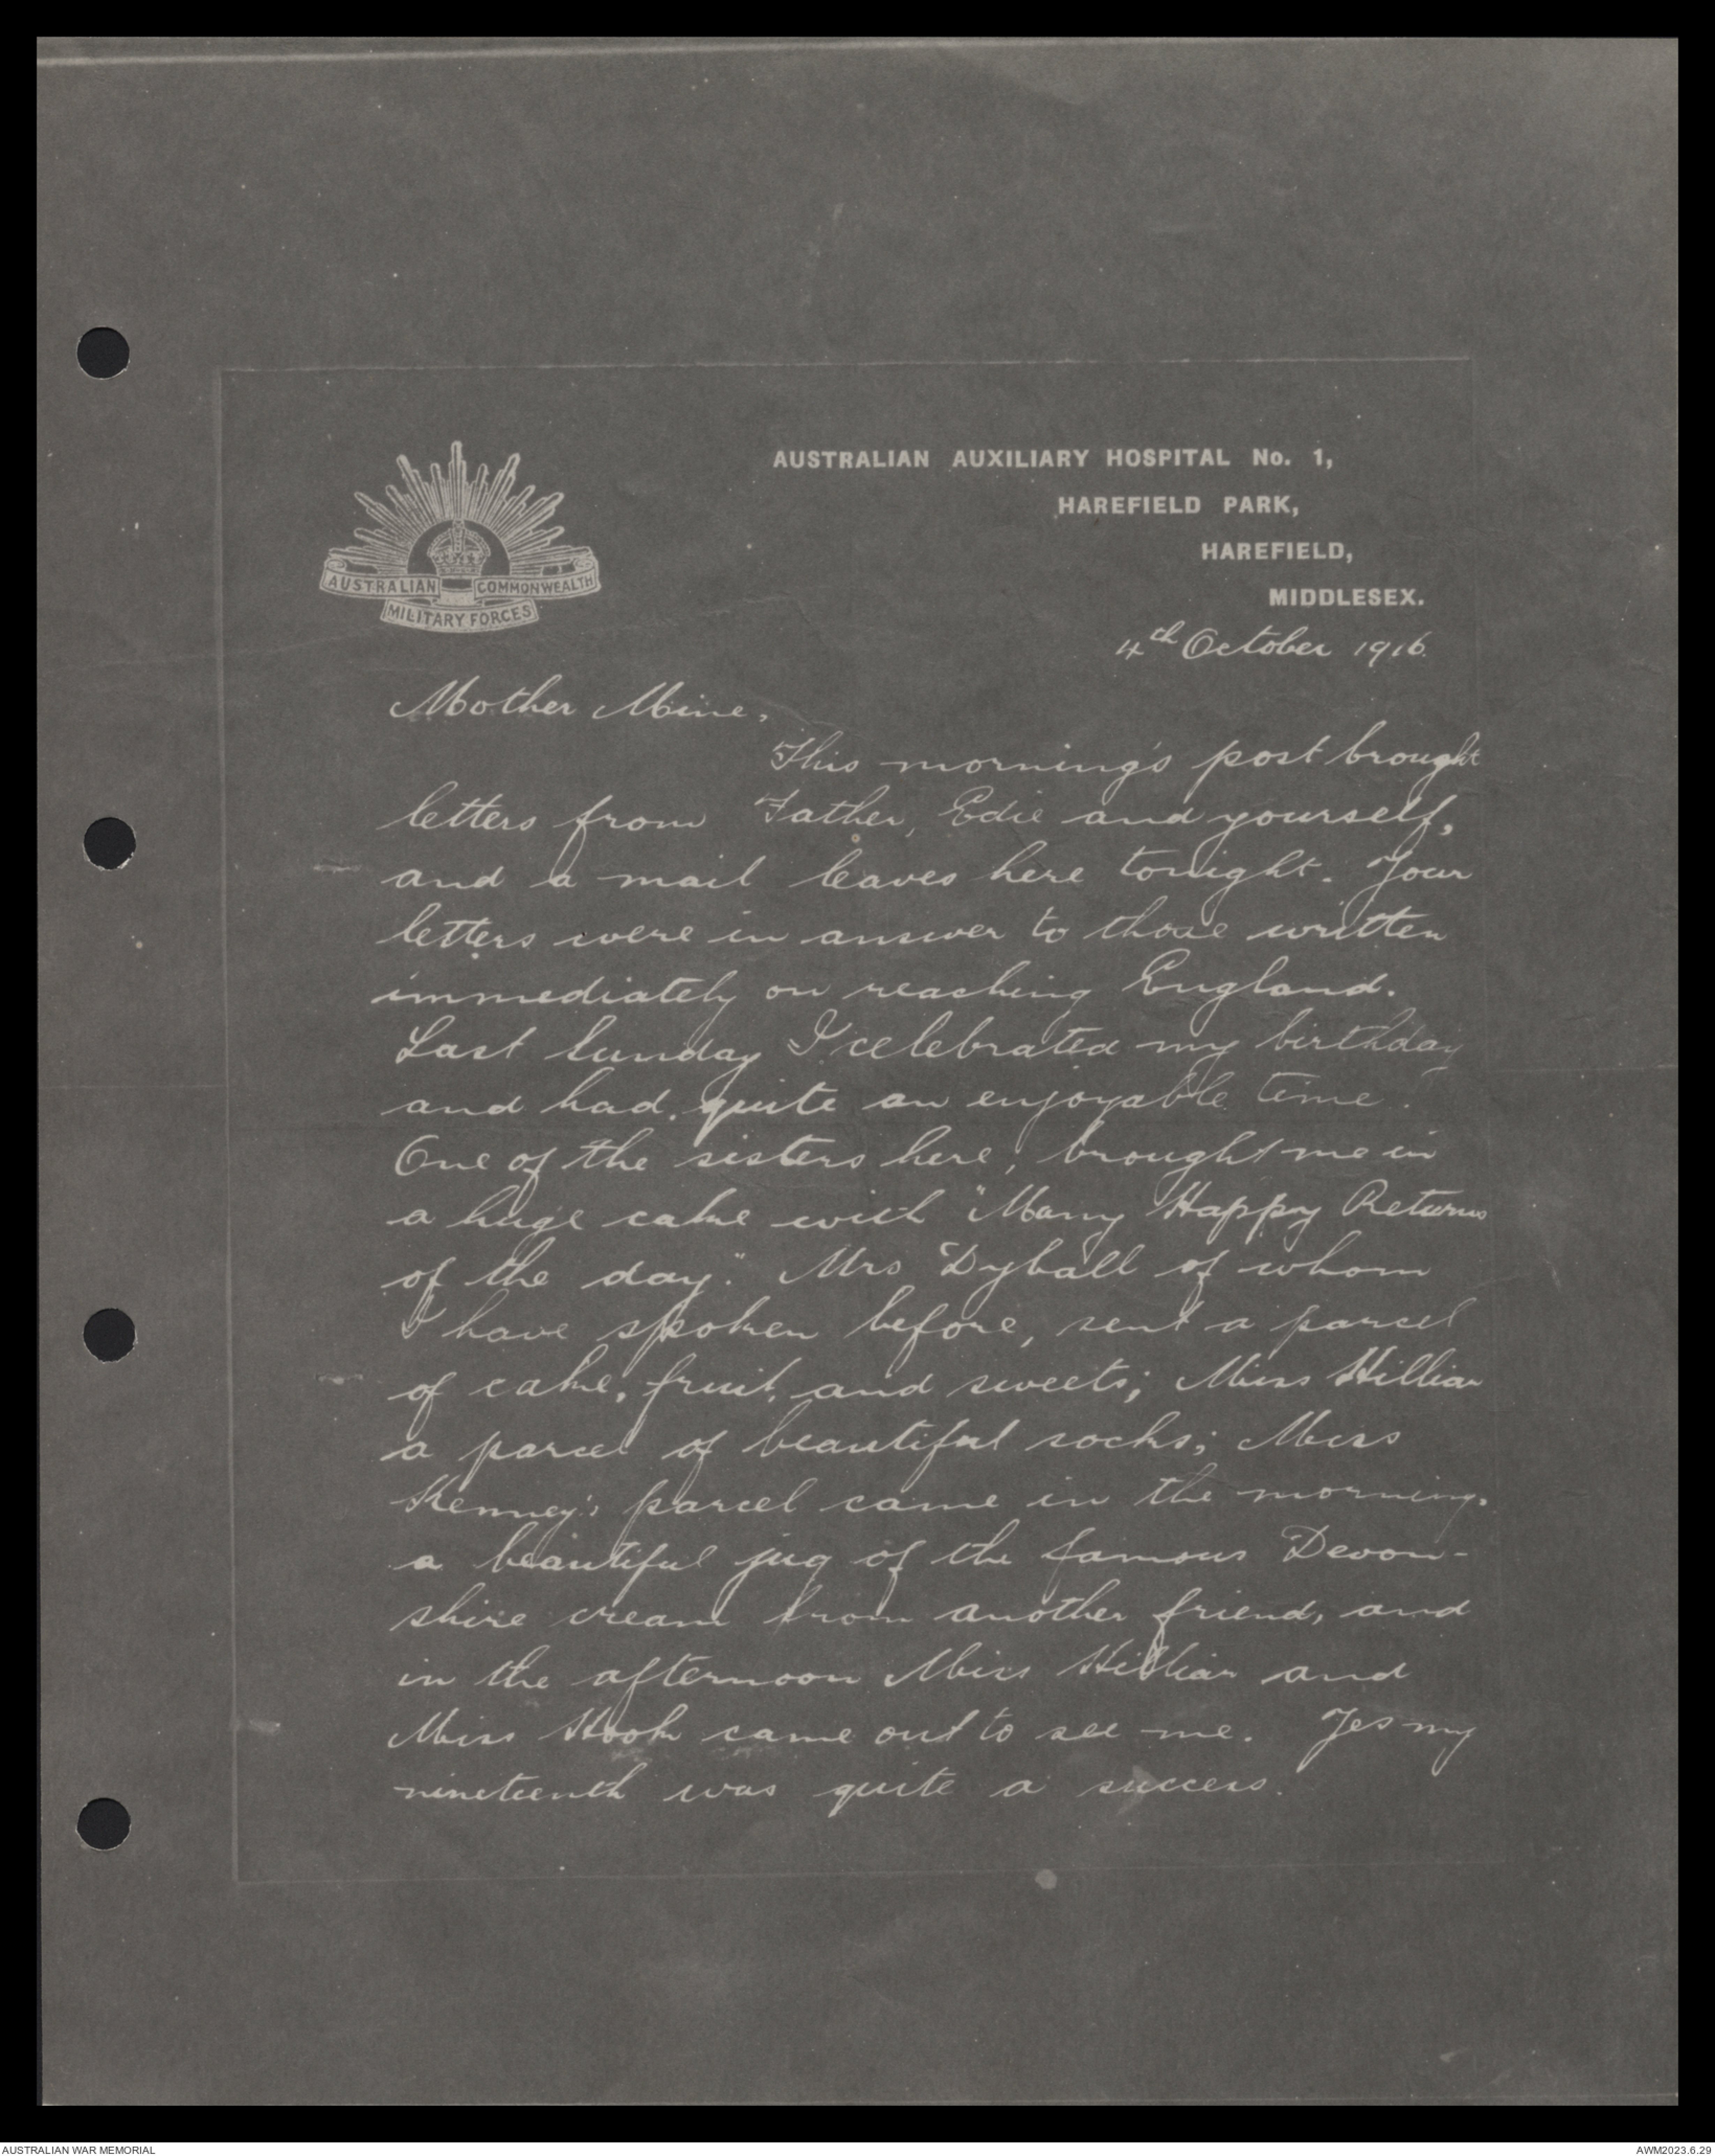 AUSTRALIAN AUXILIARY HOSPITAL No. 1,
HAREFIELD PARK,
HAREFIELD,
MIDDLESEX.
AUSTRALIAN COMMONWEALTH
MILITARY FORCES
4th October 1916.
Mother Mine,
This morning's post brought
letters from Father, Edie and yourself,
and a mail leaves here tonight. Your
letters were in answer to those written
immediately on reaching England.
Last Sunday I celebrated my birthday
and had quite an enjoyable time.
One of the sisters here, brought me in
a huge cake with "Many Happy Returns
of the day." Mrs Dyball of whom
I have spoken before, sent a parcel
of cake, fruit, and sweets; Miss Hilliar
a parcel of beautiful socks; Miss
Kenney's parcel came in the morning.
a beautiful jug of the famous Devon-
shire cream from another friend, and
in the afternoon Miss Hilliar and
Miss Hook came out to see me. Yes my
nineteenth was quite a success.
AUSTRALIAN WAR MEMORIAL
AWM2023.6.29